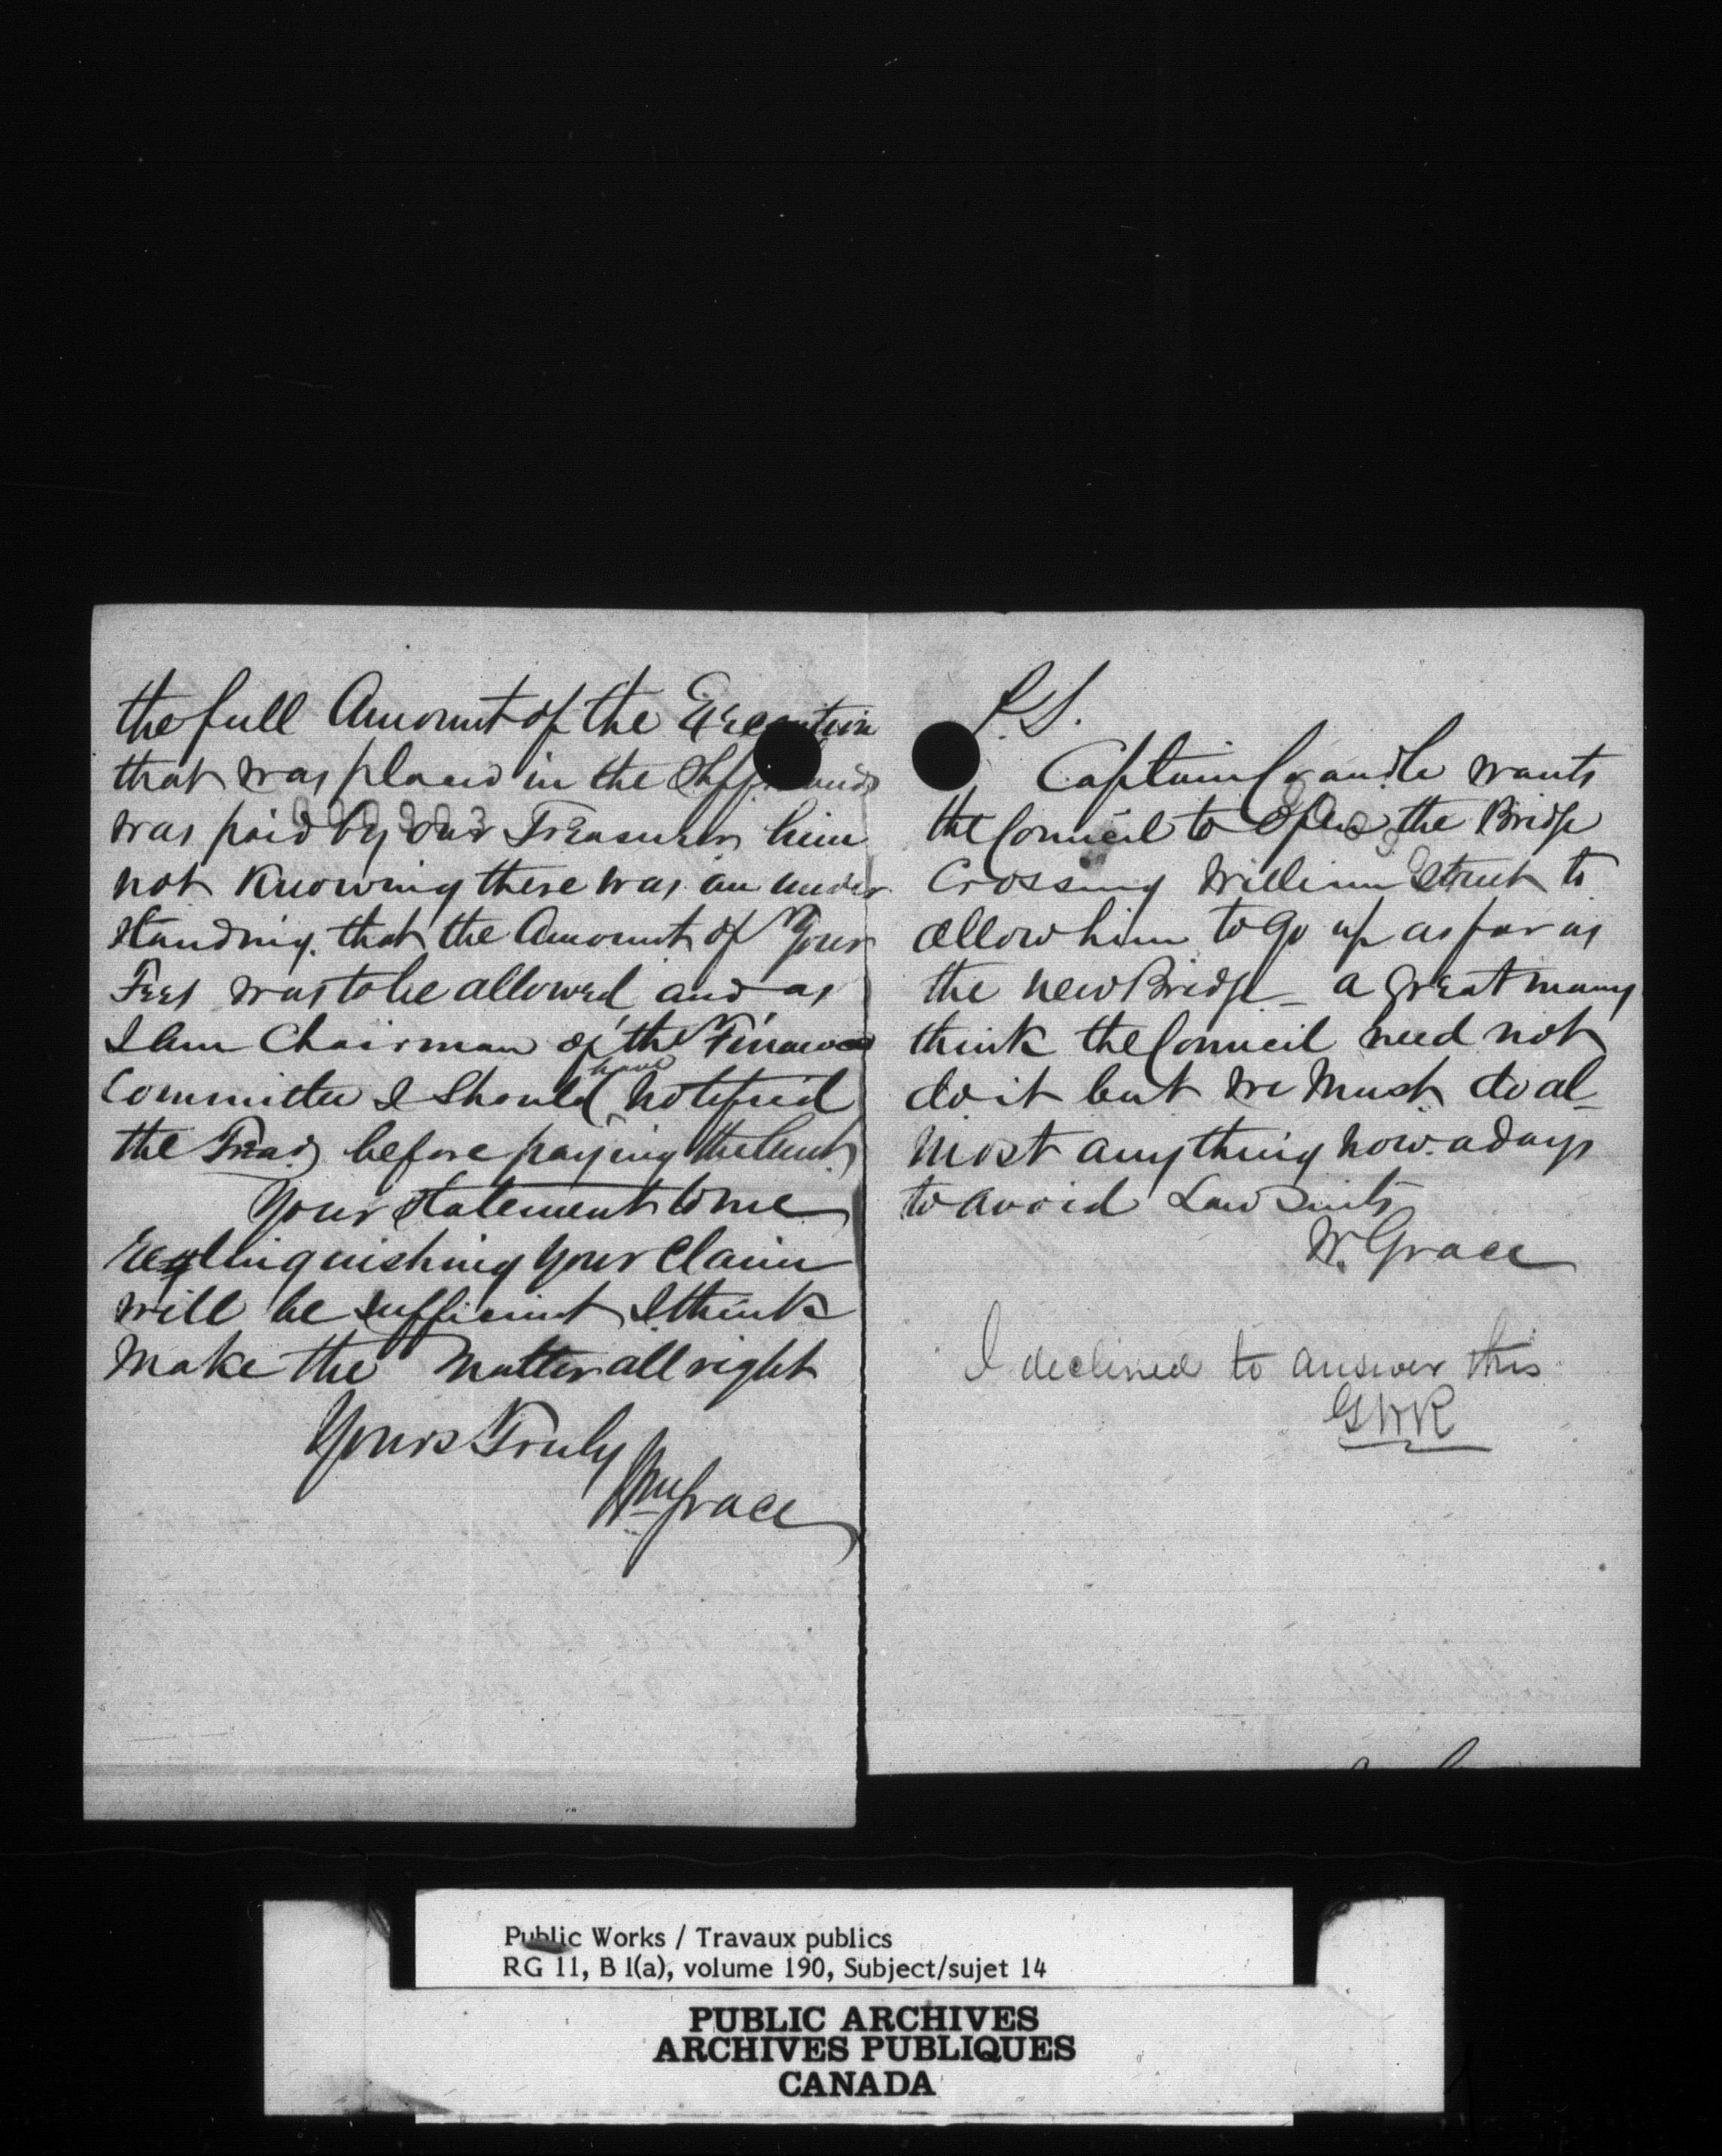 the full Amount of the Execution
that was placed in the Shffs hands
was paid by our Treasurer him
not Knowing there was an under
standing. that the Amount of Your
Fees was to be allowed and as
I am Chairman of the Finance
Committee I Should have notified
the Treas before paying the Amt
Your statement to me
Relinquishing your Claim
will be sufficient I think
Make the Matter all right
Yours Truly
Wm Grace
P.S.
Captain Crandle wants
the Council to open the Bridge
Crossing William Street to
allow him to go up as far as
the new Bridge - a great many
think the Council need not
do it but we Must do al-
most anything now. adays
to avoid Law Suits
W. Grace
I declined to answer this
GWR
Public Works / Travaux publics
RG 11, B 1(a), volume 190, Subject/sujet 14
PUBLIC ARCHIVES
ARCHIVES PUBLIQUES
CANADA